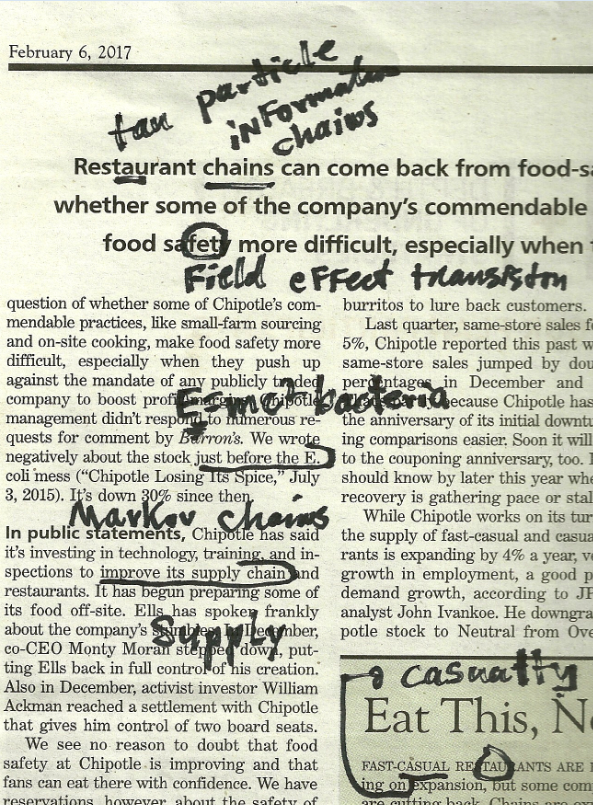 February 6, 2017
tau particle
information
chains
Restaurant chains can come back from food-sa
whether some of the company's commendable
food safety more difficult, especially when
Field effect transistor
question of whether some of Chipotle's com-
mendable practices, like small-farm sourcing
and on-site cooking, make food safety more
difficult, especially when they push up
against the mandate of any publicly traded
company to boost profit margins. Chipotle
E=mc² bacteria
management didn't respond to numerous re-
quests for comment by Barron's. We wrote
negatively about the stock just before the E.
coli mess ("Chipotle Losing Its Spice," July
3, 2015). It's down 30% since then.
Markov chains
In public statements, Chipotle has said
it's investing in technology, training, and in-
spections to improve its supply chain and
restaurants. It has begun preparing some of
its food off-site. Ells has spoken frankly
about the company's stumbles. In December,
Supply
co-CEO Monty Moran stepped down, put-
ting Ells back in full control of his creation.
Also in December, activist investor William
Ackman reached a settlement with Chipotle
that gives him control of two board seats.
We see no reason to doubt that food
safety at Chipotle is improving and that
fans can eat there with confidence. We have
reservations, however, about the safety of
burritos to lure back customers.
Last quarter, same-store sales f
5%, Chipotle reported this past w
same-store sales jumped by dou
percentages in December and
because Chipotle has
the anniversary of its initial downtu
ing comparisons easier. Soon it will
to the couponing anniversary, too. I
should know by later this year whe
recovery is gathering pace or stal
While Chipotle works on its tur
the supply of fast-casual and casua
rants is expanding by 4% a year, v
growth in employment, a good p
demand growth, according to JP
analyst John Ivankoe. He downgra
potle stock to Neutral from Ove
casualty
Eat This, No
FAST-CASUAL RESTAURANTS ARE
ing on expansion, but some com
are cutting back. Chains are